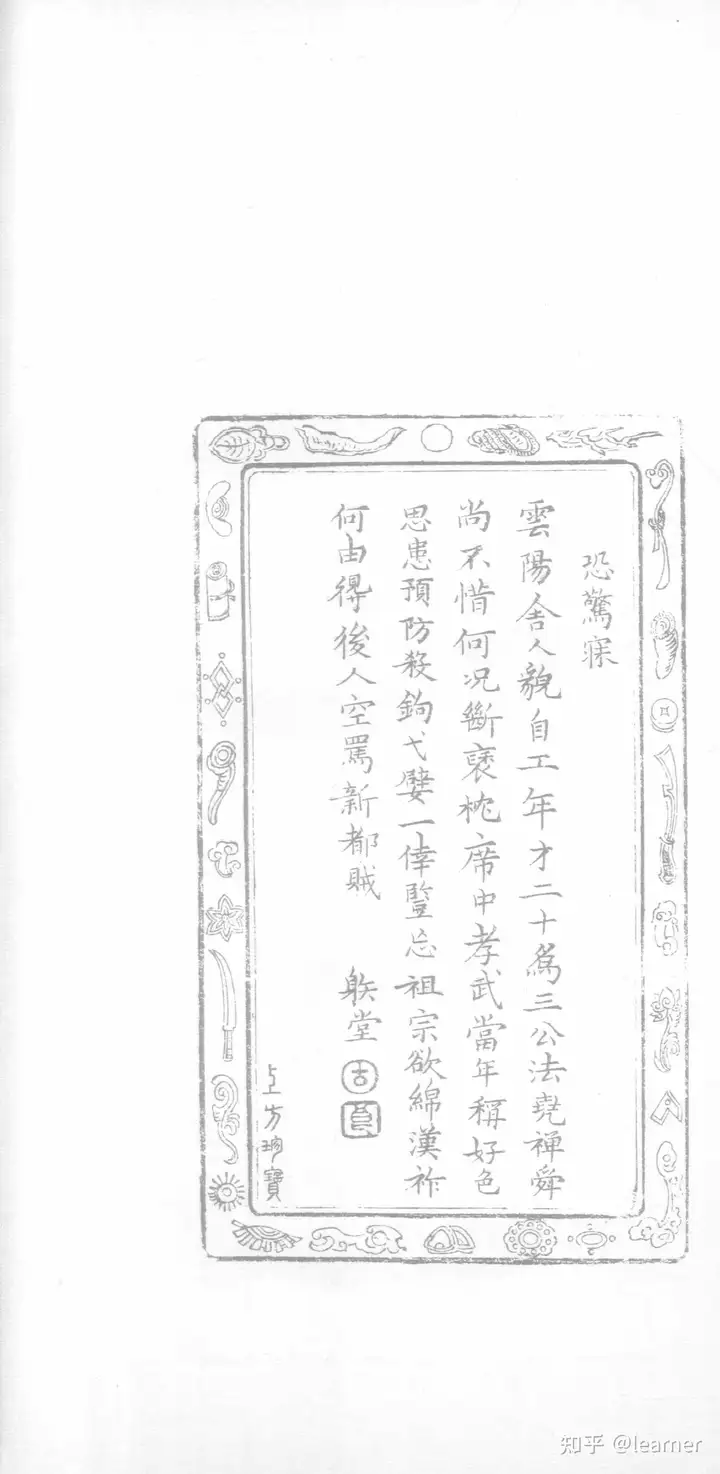 恐驚寐
雲陽舍人貌自工年才二十為三公法堯禪舜
尚不惜何況斷褎枕席中孝武當年稱好色
思患預防殺鉤弋嬖一倖豎忘祖宗欲綿漢祚
何由得後人空罵新都賊
躲堂
古 貟
上方珎寶
知乎 @learner